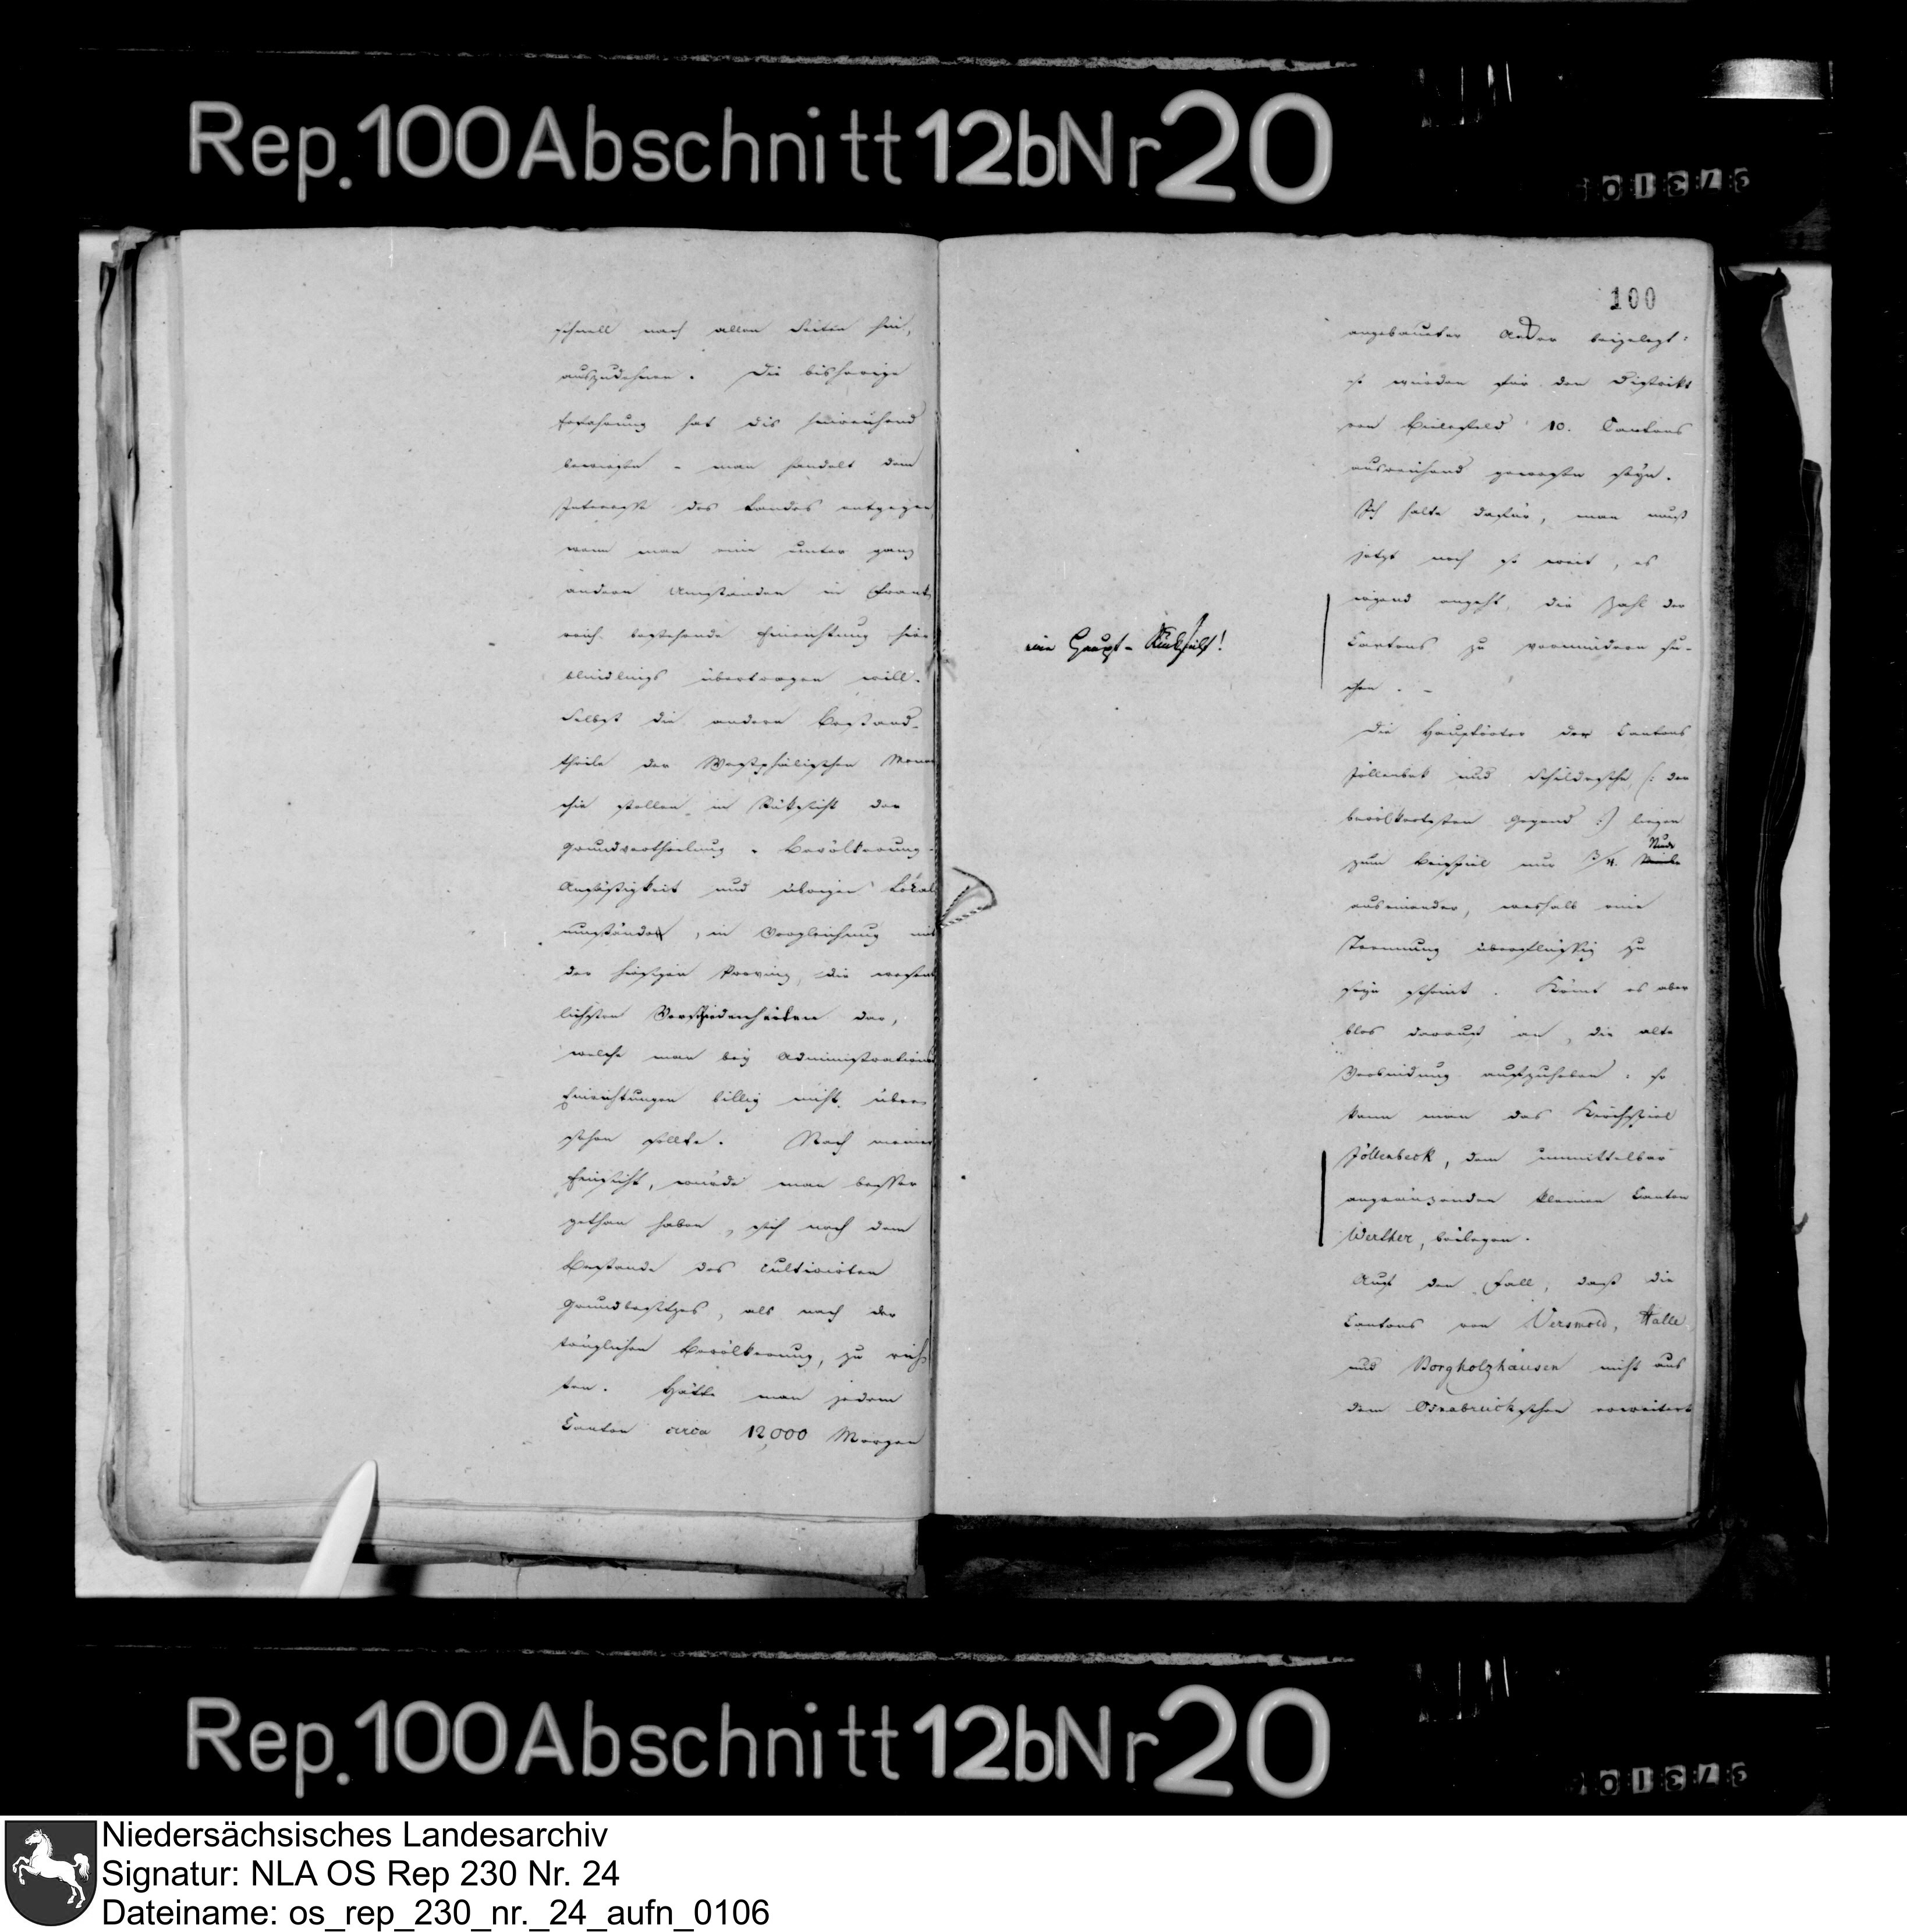 Rep. 100 Abschnitt 12b Nr 20
schnell nach allen Seiten hin,
auszudehnen. Die bisherige
Erfahrung hat dis hinreichend
bewiesen - man handelt dem
Interesse des Landes entgegen
wenn man eine unter ganz
andern Umständen in Frank
reich bestehende Einrichtung hier
blindlings übertragen will.
Selbst die andern Bestand-
theile der Westphälischen Monar
chie stellen in Rüksicht der
Grundvertheilung, Bevölkerung,
Ansäßigkeit und übrigen Lokal
umständen, in Vergleichung mit
der hiesigen Provinz, die wesent
lichsten Verschiedenheiten dar,
welche man bey Administrations
Einrichtungen billig nicht über
sehen sollte. Nach meiner
Einsicht, würde man besser
gethan haben, sich nach dem
Bestande des cultivirten
Grundbesitzes, als nach der
täuglichen Bevölkerung, zu rich
ten. Hätte man jedem
Canton circa 12,000 Morgen
100
angebaueter Aeder beigelegt:
so würden für den Distrikt
von Bielefeld 10. Cantons
ausreichend gewesen seyn.
Ich halte dafür, man muß
jetzt noch so weit, es
irgend angeht, die Zahl der
Cantons zu vermindern su-
chen. -
eine Haupt-Rücksicht!
Die Hauptörter der Cantons
Jöllenbek und Schildesche (: der
bevölkertsten Gegend :) liegen
zum Beispiel nur 3/4. Stunde
auseinander, weshalb eine
Trennung überflüssig zu
seyn scheint. Kömt es aber
blos darauf an, die alte
Verbindung aufzuheben: so
kann man das Kirchspiel
Jöllenbeck, dem unmittelbar
angränzenden kleinen Canton
Werther, beilegen.
Auf den Fall, daß die
Cantons von Versmold, Halle
und Borgholzhausen nicht aus
dem Osnabrückschen erweitert
Rep. 100 Abschnitt 12b Nr 20
Niedersächsisches Landesarchiv
Signatur: NLA OS Rep 230 Nr. 24
Dateiname: os_rep_230_nr._24_aufn_0106